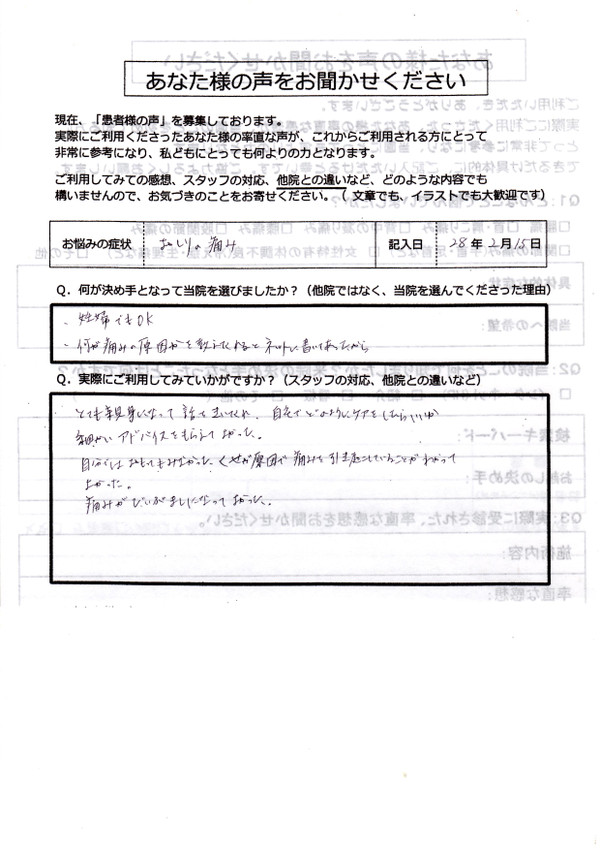 あなた様の声をお聞かせください
現在、「患者様の声」を募集しております。
実際にご利用くださったあなた様の率直な声が、これからご利用される方にとって
非常に参考になり、私どもにとっても何よりの力となります。
ご利用してみての感想、スタッフの対応、他院との違いなど、どのような内容でも
構いませんので、お気づきのことをお寄せください。（ 文章でも、イラストでも大歓迎です）
お悩みの症状 おしりの痛み 記入日 28年2月15日
Q．何が決め手となって当院を選びましたか？（他院ではなく、当院を選んでくださった理由）
・妊婦でもOK
・何が痛みの原因かを教えてくれるとネットに書いてあったから
Q．実際にご利用してみていかがですか？（スタッフの対応、他院との違いなど）
とても親身になって話をきいてくれ、自宅でどのようにケアをしたらいいか
細かいアドバイスをもらえてよかった。
自分ではおもてもみなかったくせが原因で痛みを引き起こしていることがわかって
よかった。
痛みがだいぶましになってよかった。